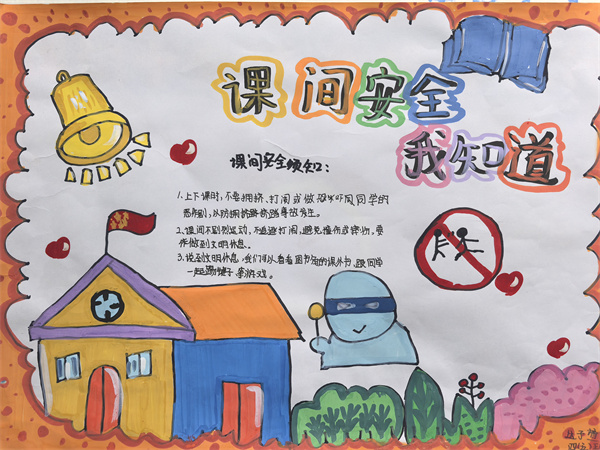 课间安全
我知道
课间安全须知:
1.上下课时,不要拥挤、打闹或做
同学的
恶作剧,从防拥挤踩踏事故发生。
2.课间不剧烈运动,不追逐打闹,避免撞伤或摔伤,要
作做到文明休息。
3.说到文明休息,我们可以看看图书角的课外书、跟同学
一起踢毽子等游戏。